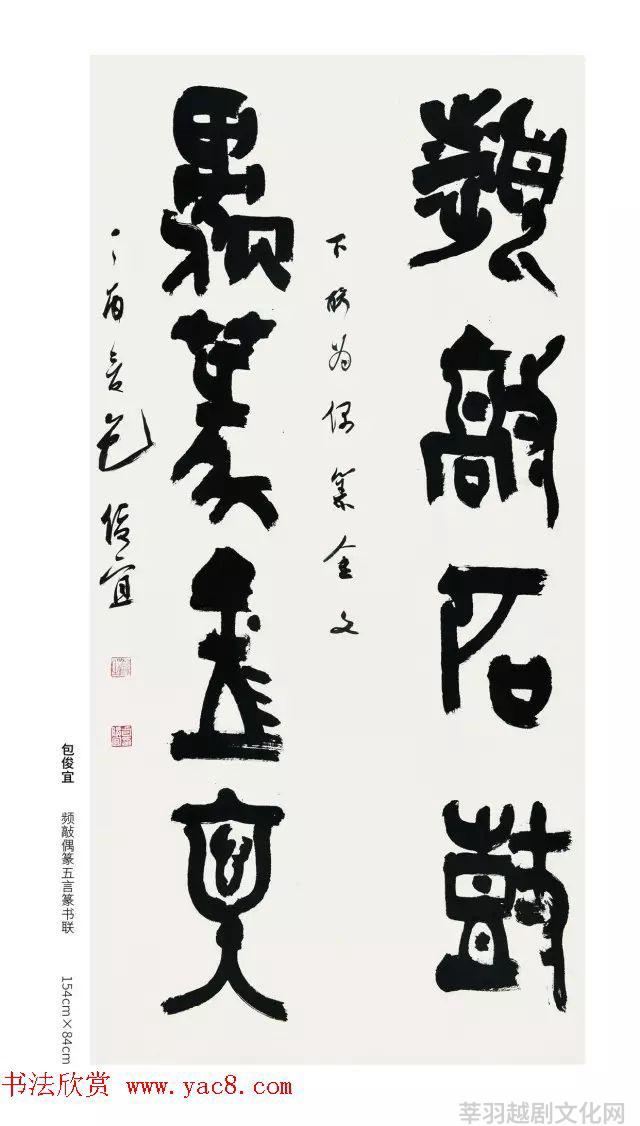 頻敲石鼓
下联为偶篆金文
偶篆金文
丁酉春包俊宜
包俊宜 频敲偶篆五言篆书联 154cm×84cm
书法欣赏 www.yac8.com
莘羽越剧文化网